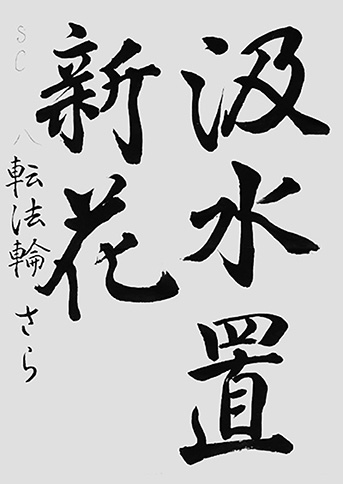 汲水置
新花
SC 八 転法輪 さら